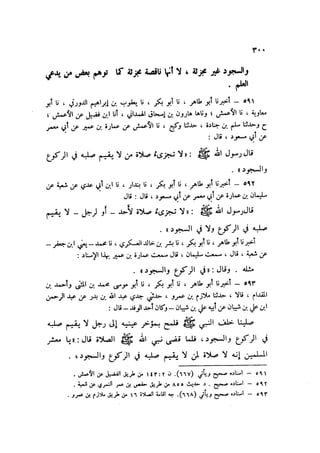 ٣٠٠
والسجود غير مجزئة ، لا أنها ناقصة مجزئة كما توهم بعض من يدعي
العلم .
٥٩١ – أخبرنا أبو طاهر ، نا أبو بكر ، نا يعقوب بن إبراهيم الدورقي ، نا أبو
معاوية ، نا الأعمش ؛ ونا هارون بن إسحاق الهمداني ، أنا ابن فضيل عن الأعمش ؛
ح وحدثنا سلم بن جنادة ، حدثنا وكيع ، نا الأعمش عن عمارة بن عمير عن أبي معمر
عن أبي مسعود ، قال :
قال رسول الله ﷺ : «لا تجزىء صلاة من لا يقيم صلبه في الركوع
والسجود» .
٥٩٢ – أخبرنا أبو طاهر ، نا أبو بكر ، نا بندار ، نا ابن أبي عدي عن شعبة عن
سليمان بن عمارة عن أبي معمر عن أبي مسعود ، قال : قال
قال رسول الله ﷺ : «لا تجزىء صلاة لأحد – أو لرجل – لا يقيم
صلبه في الركوع ولا في السجود» .
أخبرنا أبو طاهر ، نا أبو بكر ، نا بشر بن خالد العسكري ، نا محمد – يعني ابن جعفر –
عن شعبة ، قال ، سمعت سليمان ، قال سمعت عمارة بن عمير بهذا الإسناد :
مثله . وقال : «في الركوع والسجود» .
٥٩٣ – أخبرنا أبو طاهر ، نا أبو بكر ، نا أبو موسى محمد بن المثنى وأحمد بن
المقدام ، قالا ، حدثنا ملازم بن عمرو ، حدثني جدي عبد الله بن بدر عن عبد الرحمن
ابن علي بن شيبان عن أبيه علي بن شيبان – وكان أحد الوفد – قال :
صلينا خلف النبي ﷺ فلمح بمؤخر عينيه إلى رجل لا يقيم صلبه
في الركوع والسجود ، فلما قضى نبي الله ﷺ الصلاة قال : «يا معشر
المسلمين إنه لا صلاة لمن لا يقيم صلبه في الركوع والسجود» .
٥٩١ – اسناده صحيح ويأتي (٦٦٧). ن ٢ : ١٤٣ من طريق الفضيل عن الأعمش .
٥٩٢ – اسناده صحيح . د حديث ٨٥٥ من طريق حفص بن عمر النمري عن شعبة .
٥٩٣ – اسناده صحيح ويأتي (٦٦٨). جه اقامة الصلاة ١٦ من طريق ملازم بن عمرو .